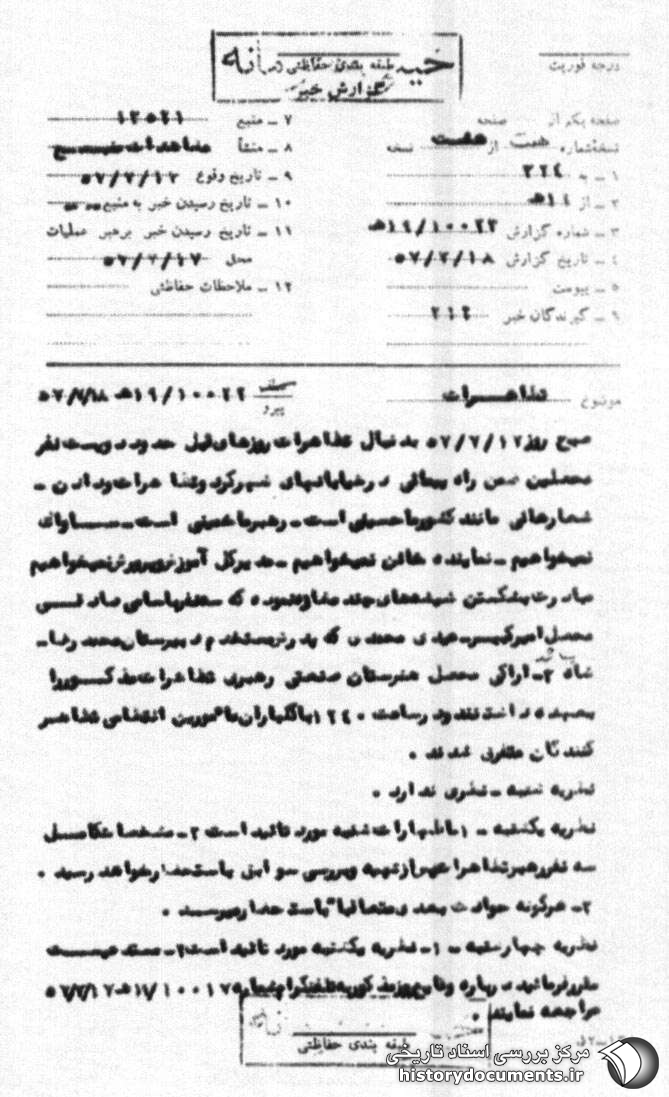 خیلی محرمانه
طبقه بندی حفاظتی
گزارش خبر
درجه فوریت
صفحه یکم از صفحه
نسخه شماره هشت از هشت نسخه
۱ ـ به ۳۲۴
۲ ـ از ۱۹ه‍
۳ ـ شماره گزارش ۱۹/۱۰۰۲۲ه‍
۴ ـ تاریخ گزارش ۵۷/۷/۱۸
۵ ـ پیوست
۶ ـ گیرندگان خبر ۳۱۲
۷ ـ منبع ۱۲۵۲۱
۸ ـ منشأ مشاهدات منبع
۹ ـ تاریخ وقوع ۵۷/۷/۱۷
۱۰ ـ تاریخ رسیدن خبر به منبع
۱۱ ـ تاریخ رسیدن خبر برهبر عملیات
محل ۵۷/۷/۱۷
۱۲ ـ ملاحظات حفاظتی
موضوع تظاهرات
پیرو ۱۹/۱۰۰۲۲ه‍ ۵۷/۷/۱۸
صبح روز ۵۷/۷/۱۷ بدنبال تظاهرات روزهای قبل حدود دویست نفر
محصلین ضمن راه پیمائی در خیابانهای شهرکرد و تظاهرات و دادن ـ
شعارهائی مانند کشور ما حسینی است ـ رهبر ما خمینی است ـ ساواک
نمیخواهیم ـ نماینده خائن نمیخواهیم ـ مدیرکل آموزش و پرورش نمیخواهیم
مبادرت بشکستن شیشه‌های چند مغازه نموده که سه نفر باسامی صادقی
محصل امیرکبیر ـ مهدی محمدی که پدرش مستخدم دبیرستان محمد رضا ـ
شاه می باشد ۳ ـ اراکی محصل هنرستان صنعتی رهبری تظاهرات مذکور را
بعهده داشتند و در ساعت ۱۲۴۰ با گلباران مأمورین انتظامی تظاهر
کنندگان متفرق شدند .
نظریه شنبه ـ نظری ندارد .
نظریه یکشنبه ـ ۱ـ اظهارات شنبه مورد تائید است ۲ ـ مشخصات کامل
سه نفر رهبر تظاهرات پس از تهیه و بررسی سوابق باستحضار خواهد رسید .
۳ ـ هرگونه حوادث بعدی متعاقباً باستحضار میرسد .
نظریه چهارشنبه ـ ۱ـ نظریه یکشنبه مورد تائید است ۲ـ
مقرر فرمائید درباره وقایع روز مذکور به تلگرام شماره ۱۹/۱۰۰۱۷ه‍ ۵۷/۷/۱۷
مراجعه نمایند .
طبقه بندی حفاظتی
مرکز بررسی اسناد تاریخی
historydocuments.ir